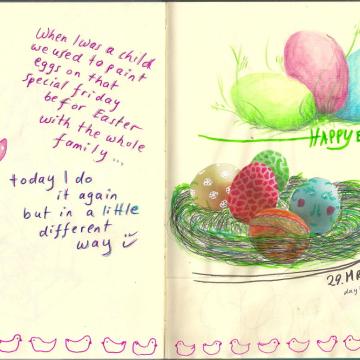 When I was a child
we used to paint
eggs on that
special friday
befor Easter
with the whole
family...
today I do
it again
but in a little
different
way
HAPPY E
29. MA
day